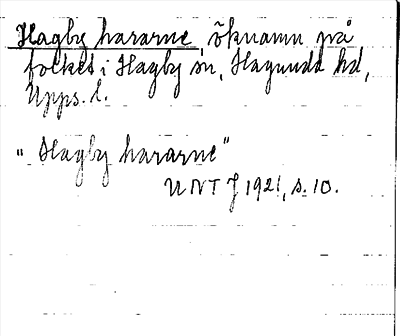 Hagby hararne, öknamn på
folket i Hagby sn, Hagunda hd,
Upps. l.
"Hagby hararne"
UNT J 1921, s. 10.